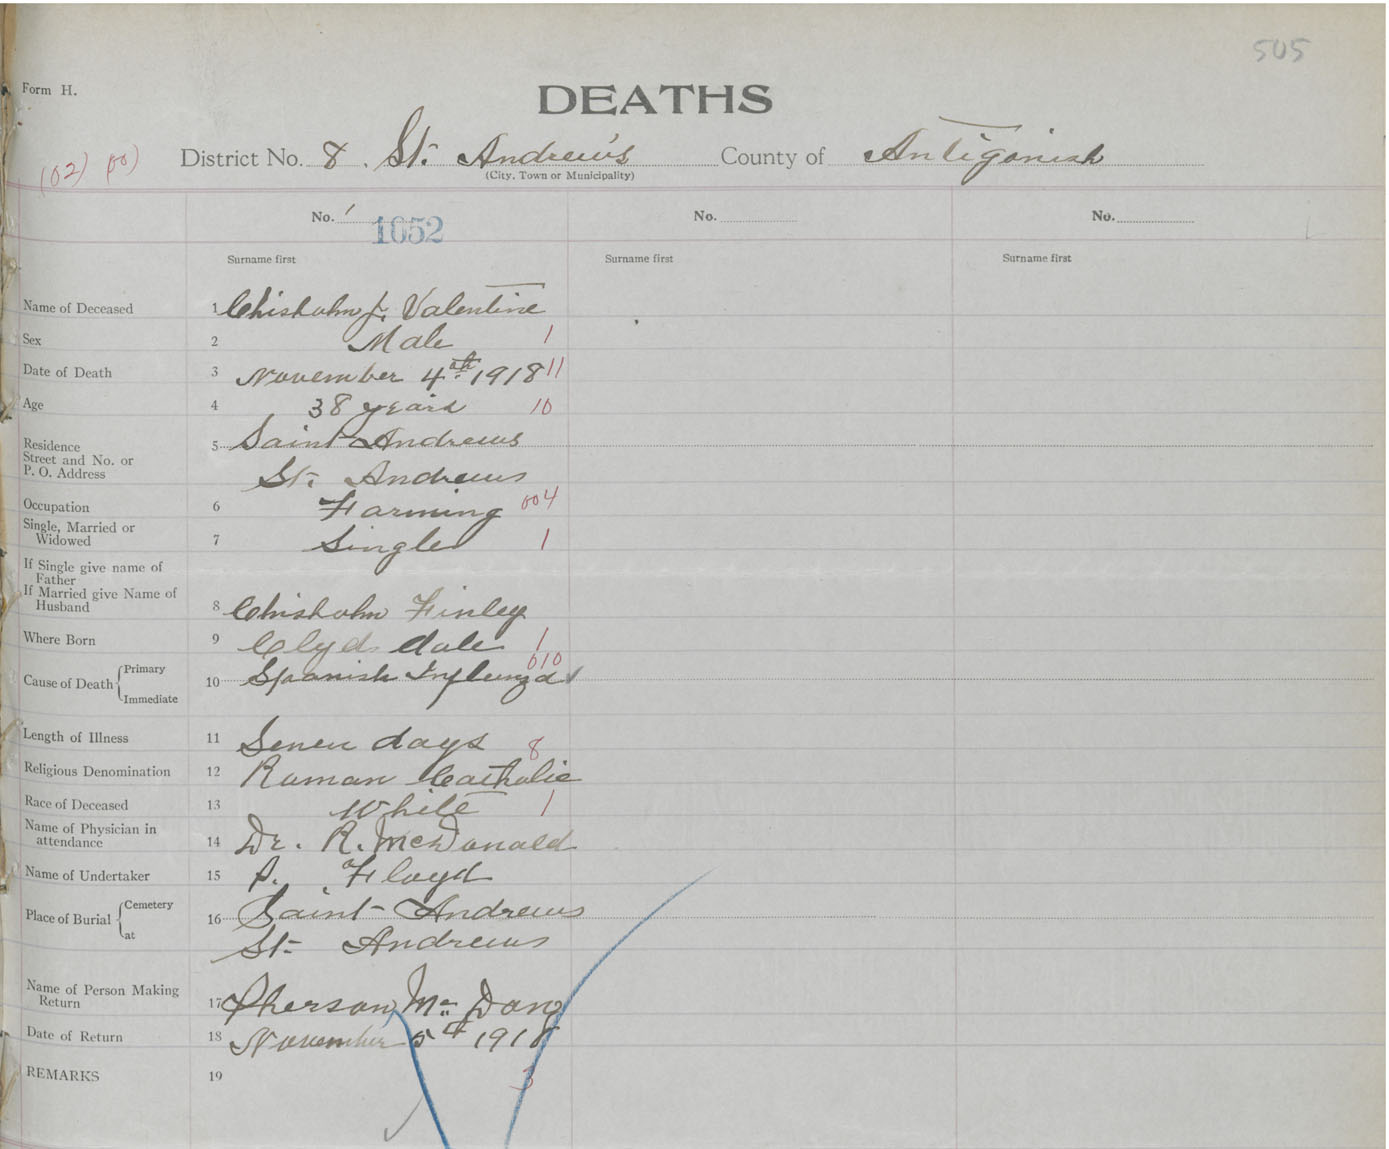 505
Form H.
DEATHS
(02) 00)
District No. 8. St. Andrew's County of Antigonish
(City, Town or Municipality)
No. 1 No. No.
1052
Surname first Surname first Surname first
Name of Deceased 1 Chisholm, Valentine
Sex 2 Male 1
Date of Death 3 November 4th 1918 11
Age 4 38 years 10
Residence 5 Saint Andrews
Street and No. or
P. O. Address St. Andrews
Occupation 6 Farming 004
Single, Married or
Widowed 7 Single 1
If Single give name of
Father
If Married give Name of
Husband 8 Chisholm Finley
Where Born 9 Clyds dale 1
010
Cause of Death Primary 10 Spanish Influenza
Immediate
Length of Illness 11 Seven days 8
Religious Denomination 12 Roman Catholic
Race of Deceased 13 White 1
Name of Physician in
attendance 14 Dr. R. McDonald
Name of Undertaker 15 Floyd
Place of Burial Cemetery 16 Saint Andrews
at St. Andrews
Name of Person Making
Return 17 Pherson Mc Dan
Date of Return 18 November 5th 1918
REMARKS 19 3